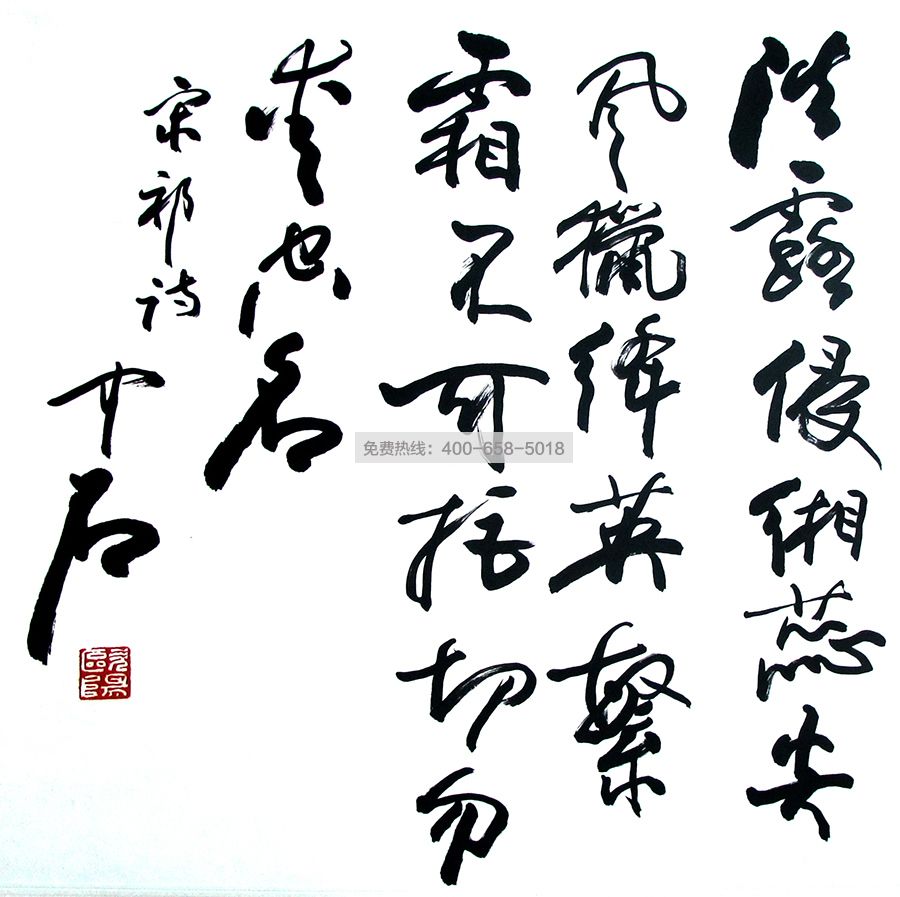 浩露侵缃蕊尖
风獵绛英繁
霜不可拒切勿
爱空名
宋祁诗
中石
免费热线：400-658-5018